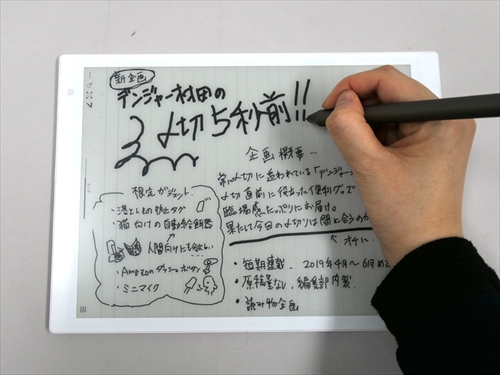 新企画
デンジャー村田の
〆切5秒前!!
企画概要…
常に〆切に追われている「デンジャー
〆切直前に役立った便利グッズ
臨場感たっぷりにお届け。
果たして今日の〆切りは間に合うのか
↑オチに
想定ガジェット
・落としもの防止タグ
・猫向けの自動給餌器
人間向けにも欲しい
・Amazonダッシュボタン
・ミニマイク
・短期連載、2019年4月〜6月めど
・原稿量なし、編集部内製
・読み物企画